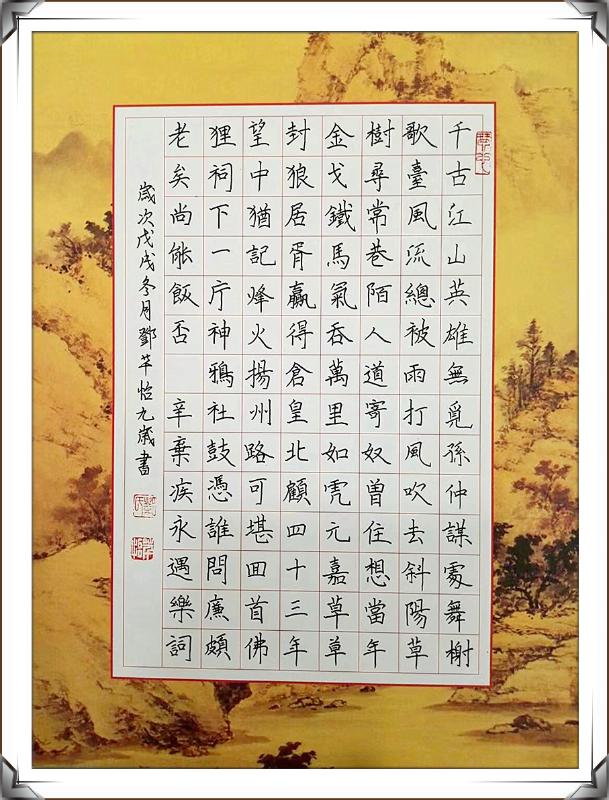 千古江山英雄無覓孫仲謀處舞榭
歌臺風流總被雨打風吹去斜陽草
樹尋常巷陌人道寄奴曾住想當年
金戈鐵馬氣吞萬里如虎元嘉草草
封狼居胥贏得倉皇北顧四十三年
望中猶記烽火揚州路可堪回首佛
狸祠下一片神鴉社鼓憑誰問廉頗
老矣尚能飯否 辛棄疾永遇樂詞
歲次戊戌冬月鄧芊怡九歲書